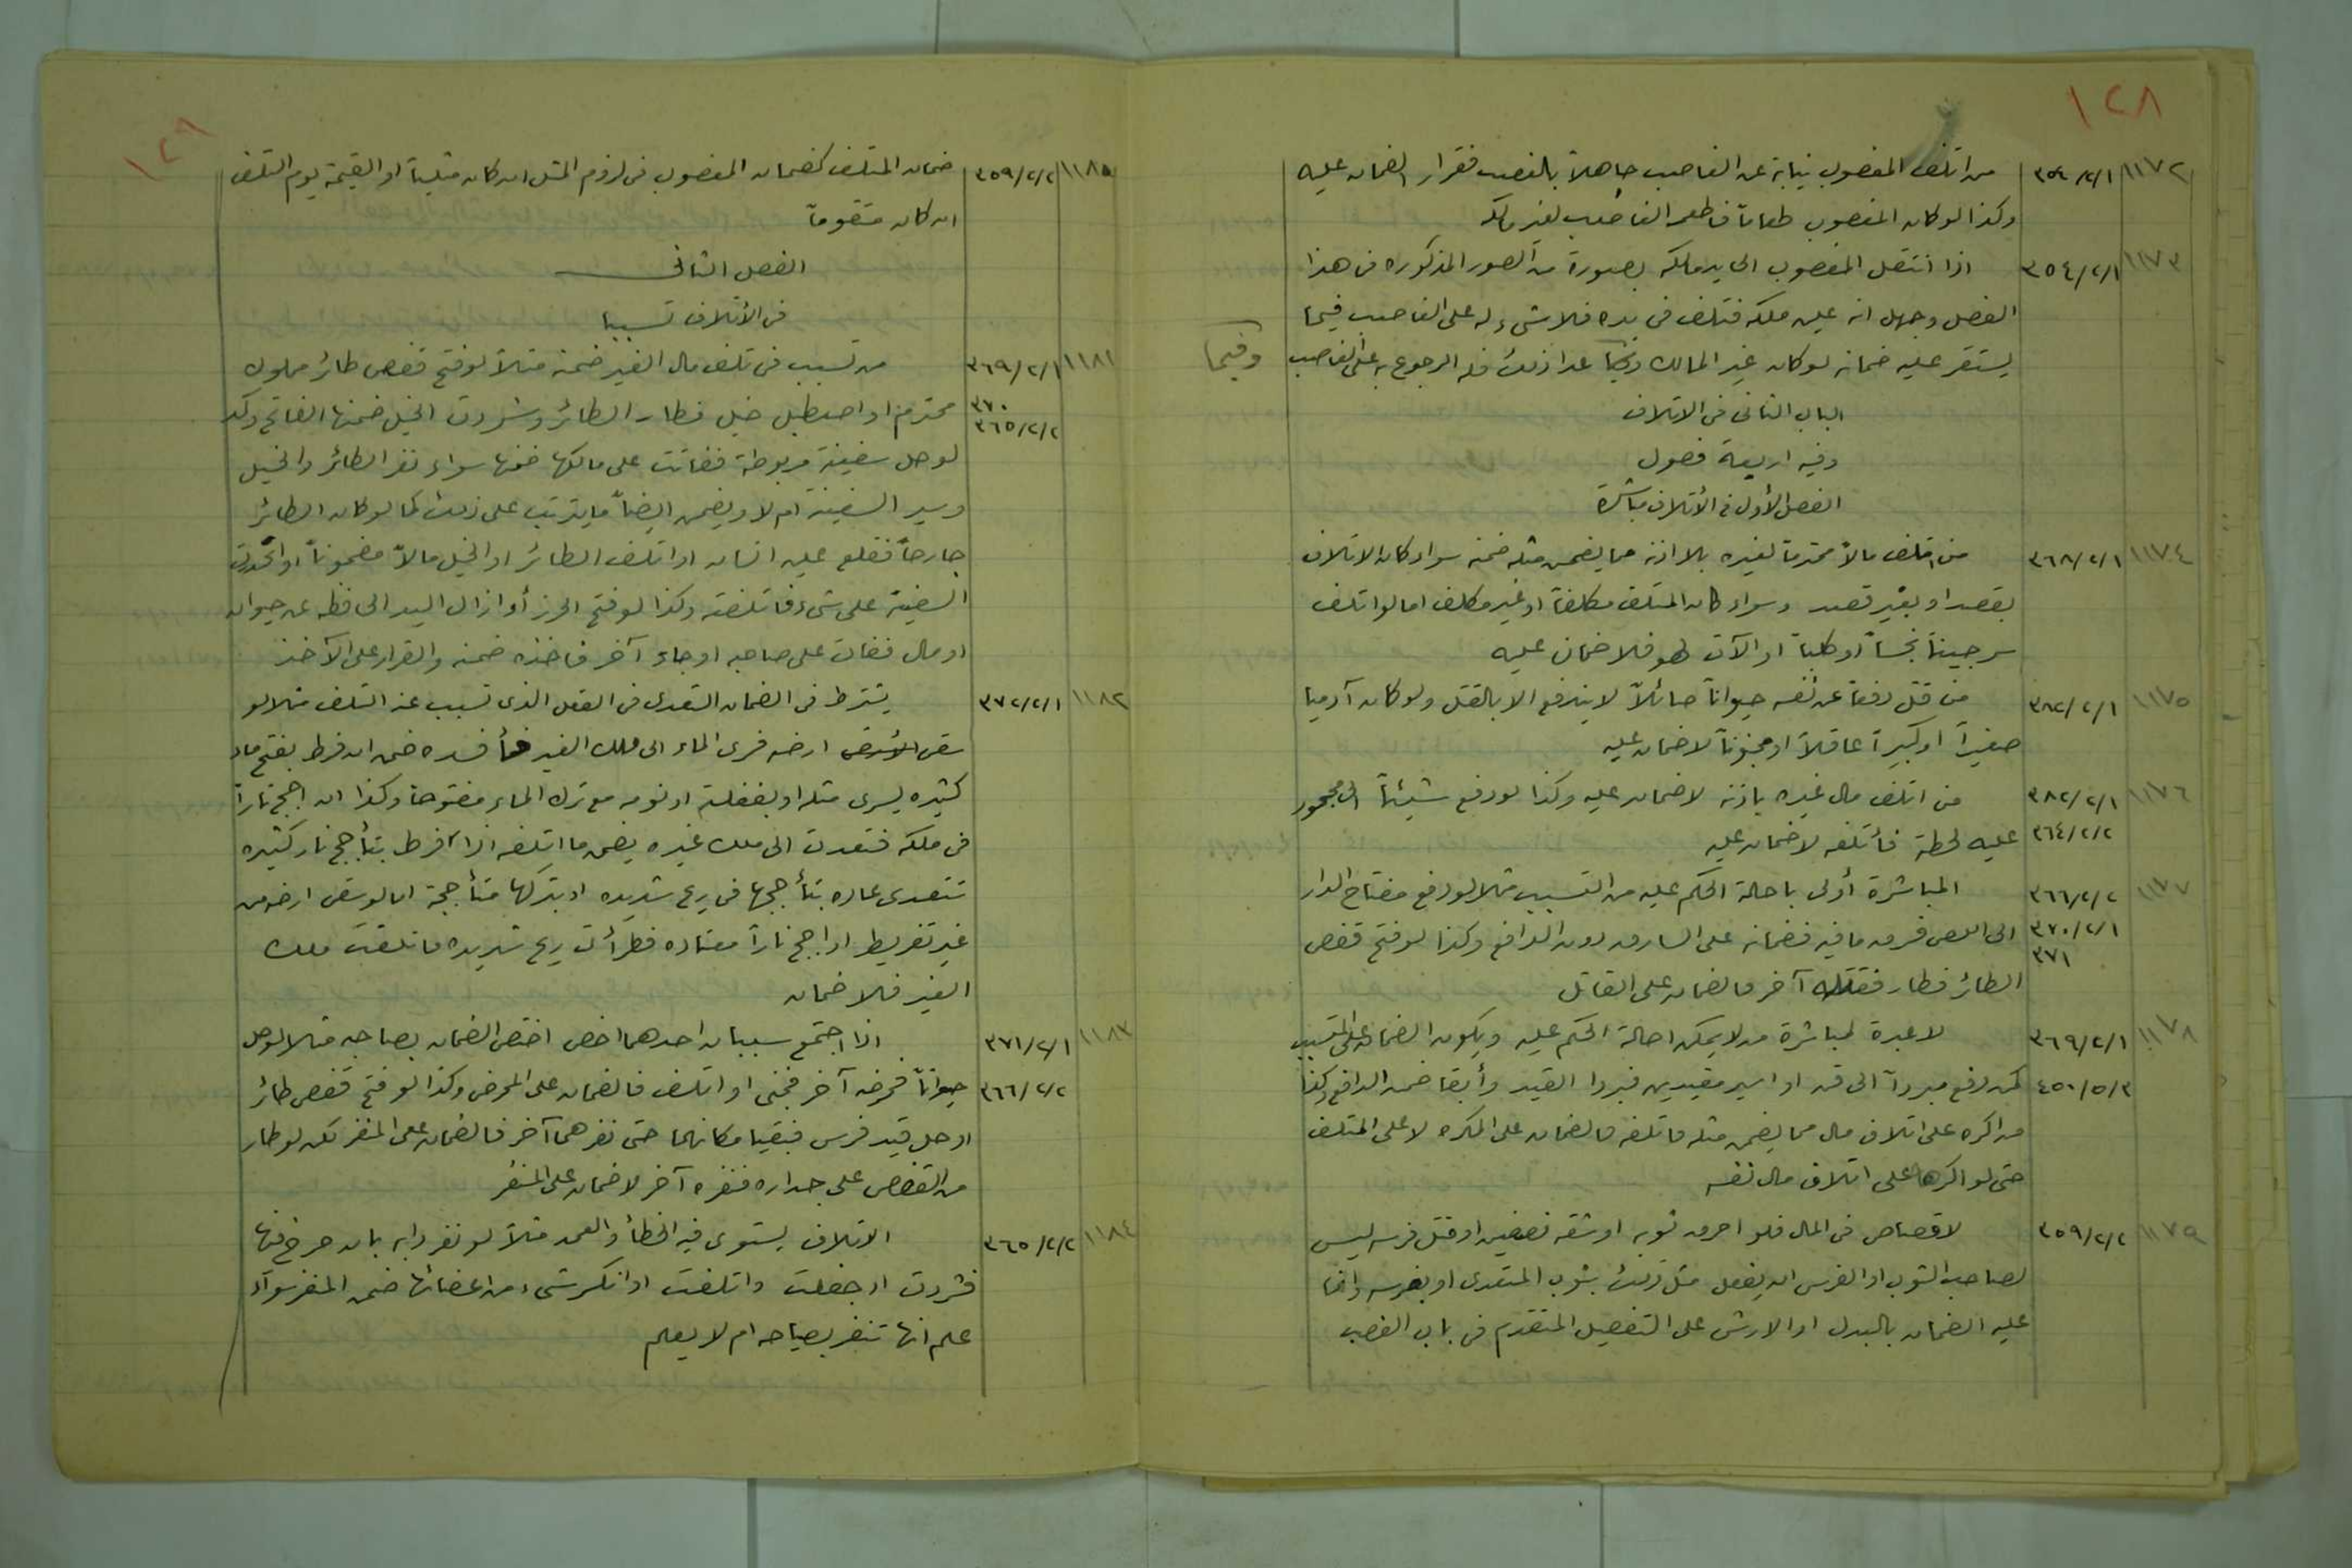 ١٢٨
١١٧٢ ٣٥٤/٢/١ من اتلف المغصوب نيابة عن الغاصب جاهلاً بالغصب فقرار الضمان عليه
وكذا لو كان المغصوب طعاماً فاطعمه الغاصب لغير مالكه
١١٧٣ ٣٥٤/٢/١ اذا انتقل المغصوب الى يد مالكه بصورة من الصور المذكوره في هذا
الفصل وجهل انه عين ملكه فتلف في يده فلا شيء له على الغاصب فيما
يستقر عليه ضمانه لو كان غير المالك وفيما عدا ذلك فله الرجوع به على الغاصب
وفيما
الباب الثاني في الاتلاف
وفيه اربعة فصول
الفصل الأول في الأتلاف مباشرة
١١٧٤ ٣٦٨/٢/١ من اتلف مالاً محترماً لغيره بلا اذنه مما يضمن مثله ضمنه سواء كان الاتلاف
بقصد او بغير قصد وسواء كان المتلف مكلفاً او غير مكلف اما لو اتلف
سرجيناً نجساً او كلباً او آلات لهو فلا ضمان عليه
١١٧٥ ٣٨٢/٢/١ من قتل دفعاً عن نفسه حيواناً صائلاً لا يندفع الا بالقتل ولو كان آدميا
صغيراً او كبيراً عاقلاً او مجنوناً لا ضمان عليه
١١٧٦ ٣٨٢/٢/١ من اتلف مال غيره باذنه لا ضمان عليه وكذا لو دفع شيئاً الى محجور
٣٦٤/٢/٢ عليه لحظه فأتلفه لا ضمان عليه
١١٧٧ ٣٦٦/٢/٢ المباشرة أولى باحالة الحكم عليه من التسبب مثلا لو دفع مفتاح الدار
٣٧٠/٢/١ الى اللص فسرق ما فيه فضمانه على السارق دون الدافع وكذا لو فتح قفص
٣٧١
الطائر فطار فقتله آخر فالضمان على القاتل
١١٧٨ ٣٦٩/٢/١ لا عبرة لمباشرة من لا يمكن احالة الحكم عليه ويكون الضمان على المتسبب
٤٥٠/٥/٣ كمن دفع مبرداً الى قن او اسير مقيدين فبردا القيد وأبقا ضمن الدافع وكذا
من اكره على اتلاف مال مما يضمن مثله فاتلفه فالضمان على المكره لا على المتلف
حتى لو اكره على اتلاف مال نفسه
١١٧٩ ٣٥٩/٢/٢ لا قصاص في المال فلو احرق ثوبه او شقه نصفين او قتل فرسه ليس
لصاحب الثوب او الفرس ان يفعل مثل ذلك بثوب المتعدى او بفرسه وانما
عليه الضمان بالبدل او الارش على التفصيل المتقدم في باب الغصب
١٢٩
١١٨٠ ٣٥٩/٢/٢ ضمان المتلف كضمان المغصوب في لزوم المثل ان كان مثلياً او القيمة يوم التلف
ان كان متقوماً
الفصل الثاني
في الأتلاف تسببا
١١٨١ ٣٦٩/٢/١ من تسبب في تلف مال الغير ضمنه مثلاً لو فتح قفص طائر مملوك
٣٧٠
٣٦٥/٢/٢ محترم او اصطبل خيل فطار الطائر وشردت الخيل ضمنها الفاتح وكذا
لو حل سفينة مربوطة ففاتت على مالكها ضمنها سواء نفر الطائر والخيل
وسير السفينة ام لا ويضمن ايضاً ما يترتب على ذلك كما لو كان الطائر
جارحاً فقلع عين انسان او اتلف الطائر او الخيل مالاً مضموناً او انحدرت
السفينة على شيء فاتلفته وكذا لو فتح الحرز أو ازال اليد الحافظه عن حيوان
او مال ففات على صاحبه او جاء آخر فاخذه ضمنه والقرار على الآخذ
١١٨٢ ٣٧٢/٢/١ يشترط في الضمان التعدى في الفعل الذي تسبب عنه التلف مثلا لو
سقى ارضه فسرى الماء الى ملك الغير فأفسده ضمن ان فرط بفتح ماء
كثيره يسرى مثله او بغفلته او نومه مع ترك الماء مفتوحاً وكذا ان اجج ناراً
في ملكه فتعدت الى ملك غيره يضمن ما اتلفه اذا فرط بتأجج نار كثيره
تتعدى عاده بتأججها في ريح شديده او بتركها متأججة اما لو سقى ارضه من
غير تفريط او اجج ناراً معتاده فطرأت ريح شديده فاتلفت ملك
الغير فلا ضمان
١١٨٣ ٣٧١/٢/١ اذا اجتمع سببان احدهما اخص اختص الضمان بصاحبه مثلا لو حل
٣٦٦/٢/٢ حيواناً فحرضه آخر فجنى او اتلف فالضمان على المحرض وكذا لو فتح قفص طائر
او حل قيد فرس فبقيا مكانهما حتى نفرهما آخر فالضمان على المنفر لكن لو طار
من القفص على جداره فنفره آخر لا ضمان على المنفر
١١٨٤ ٣٦٥/٢/٢ الاتلاف يستوى فيه الخطأ والعمد مثلاً لو نفر دابه بان صرخ فيها
فشردت او جفلت واتلفت او انكسر شيء من اعضائها ضمن المنفر سواء
علم انها تنفر بصياحه ام لا يعلم